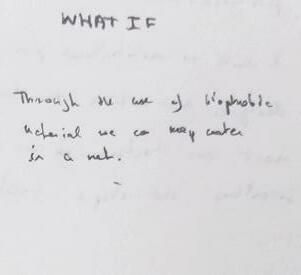 WHAT IF
Through the use of biophobic
material we can keep water
in a net.